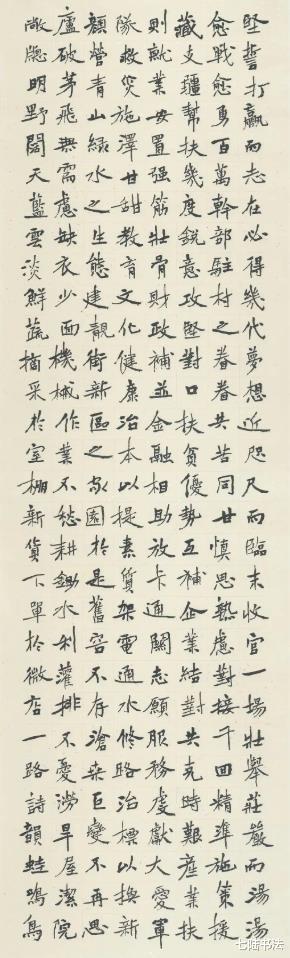 堅誓打贏而志在必得幾代夢想近咫尺而臨末收官一場壯舉莊嚴而湯湯
愈戰愈勇百萬幹部駐村之眷眷共苦同甘慎思熟慮對接千回精準施策援
藏支疆幫扶幾度銳意攻堅對口扶貧優勢互補企業結對共克時艱產業扶
則就業安置强筋壯骨財政補並金融相助放卡通關志願服務虔獻大愛軍
隊救災施澤甘甜教育文化健康治本以提素質架電通水修路治標以換新
顏營青山綠水之生態建靚街新區之家園於是舊容不存滄桑巨變不再思
廬破茅飛無需慮缺衣少面機械作業不愁耕鋤水利灌排不憂澇旱屋潔院
敞牕明野闊天藍雲淡鮮蔬摘采於室棚新貨下單於微店一路詩韻蛙鳴鳥
七陆书法